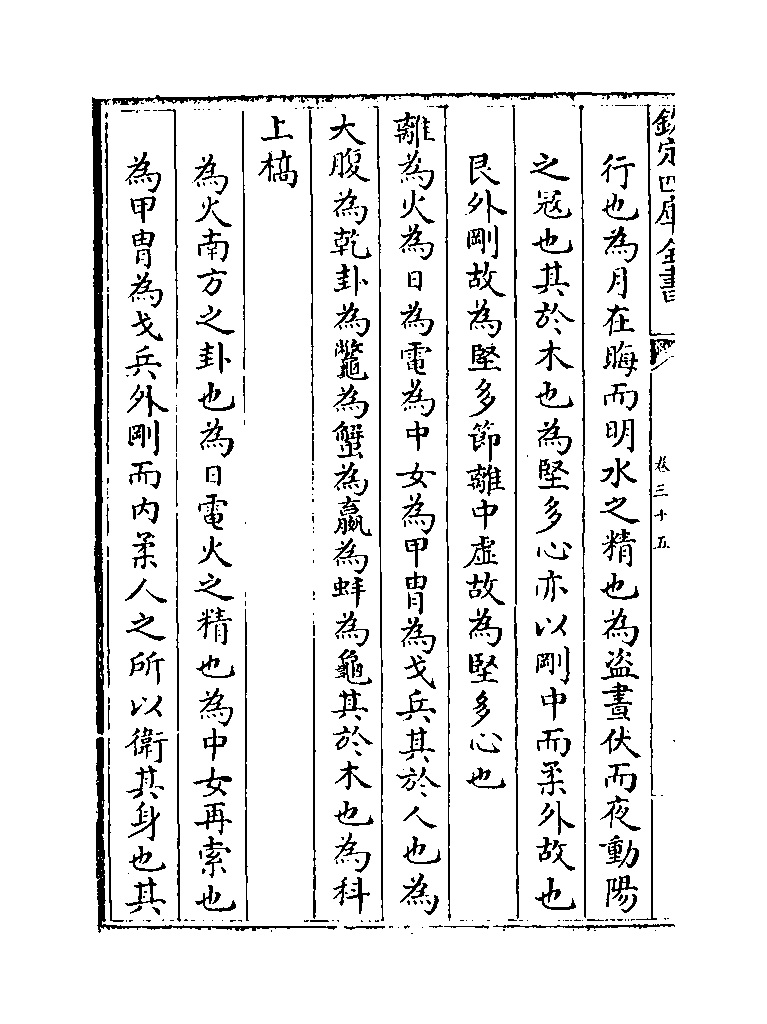 欽定四庫全書
卷三十五
行也為月在晦而明水之精也為盜晝伏而夜動陽
之冦也其於木也為堅多心亦以剛中而柔外故也
艮外剛故為堅多節離中虛故為堅多心也
離為火為日為電為中女為甲胄為戈兵其於人也為
大腹為乾卦為鼈為蟹為蠃為蚌為龜其於木也為科
上槁
為火南方之卦也為日電火之精也為中女再索也
為甲胄為戈兵外剛而内柔人之所以衛其身也其